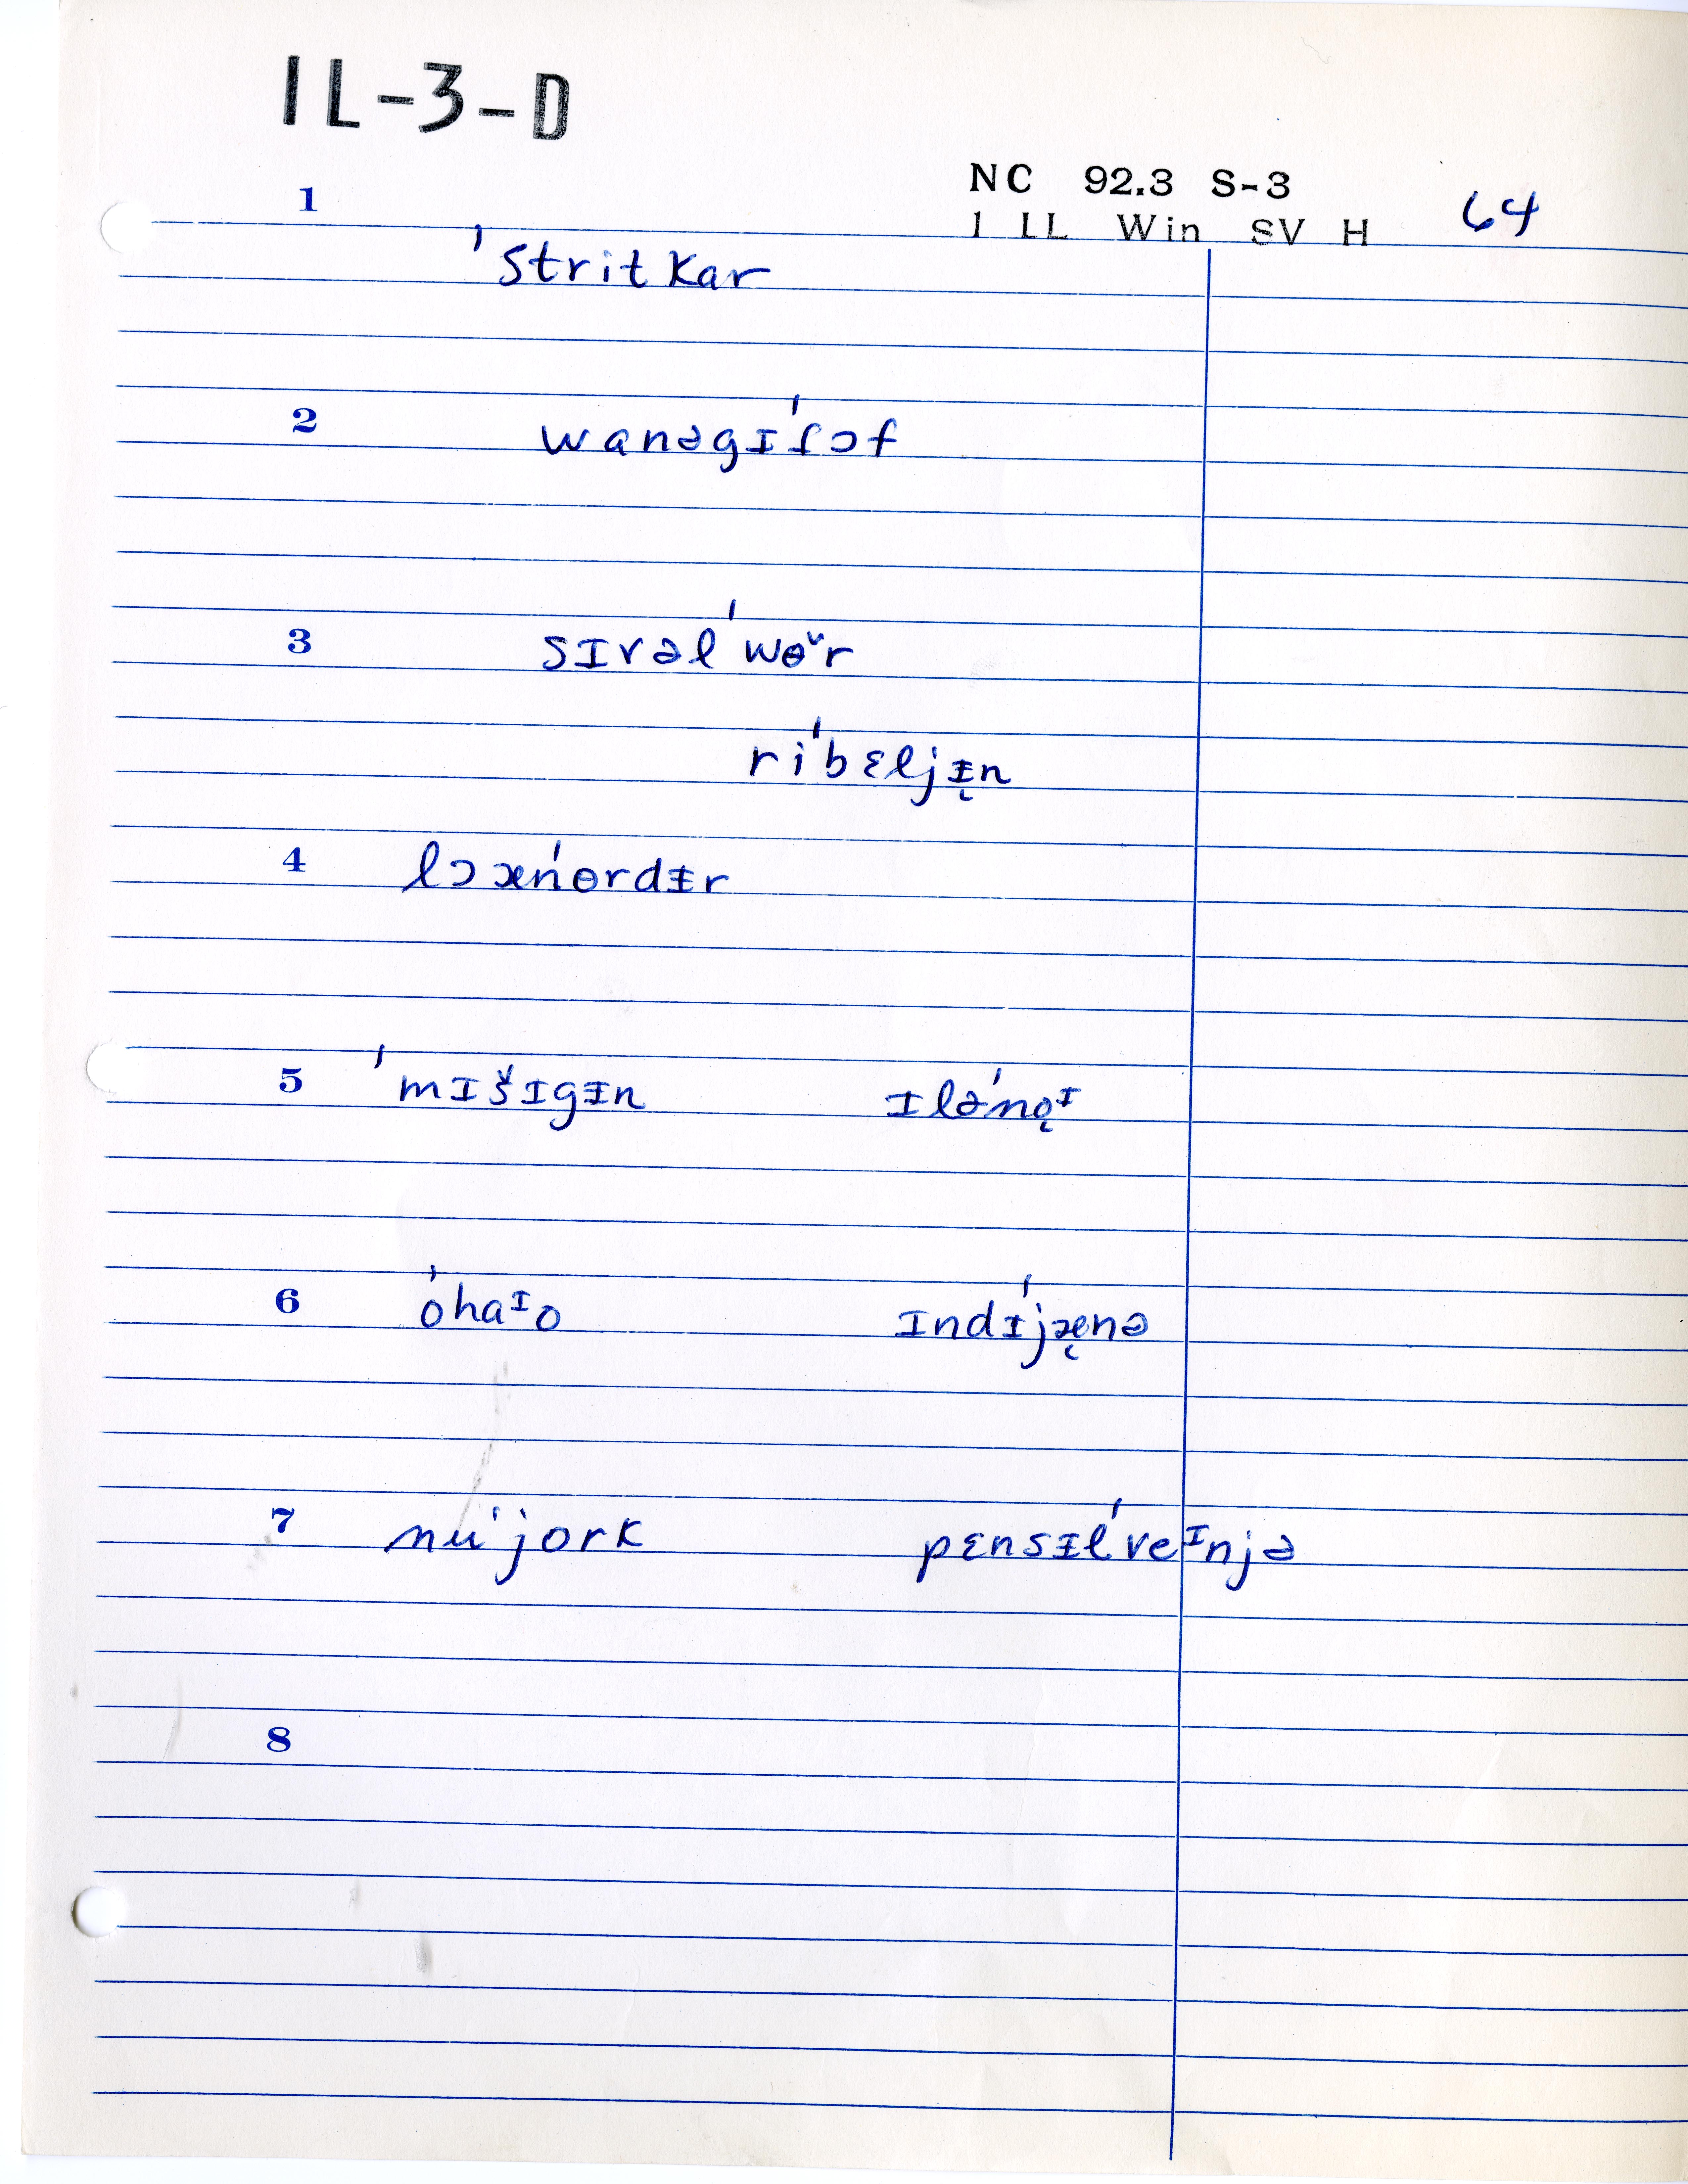 IL-3-D
NC 92.3 S-3
1 LL Win SV H 64
1
ˈstritkar
2
wanəgɪˈɾɔf
3
sɪvəlˈwɵ˅r
riˈbɛljᵻ̨n
4
lɔænˈɵrdᵻr
5 ˈmɪšɪgᵻn ɪləˈnǫᶦ
6 ˈohaᶦo ɪndɪˈjæ̨nə
7 nuˈjork pɛnsᵻlˈveᶦnjə
8